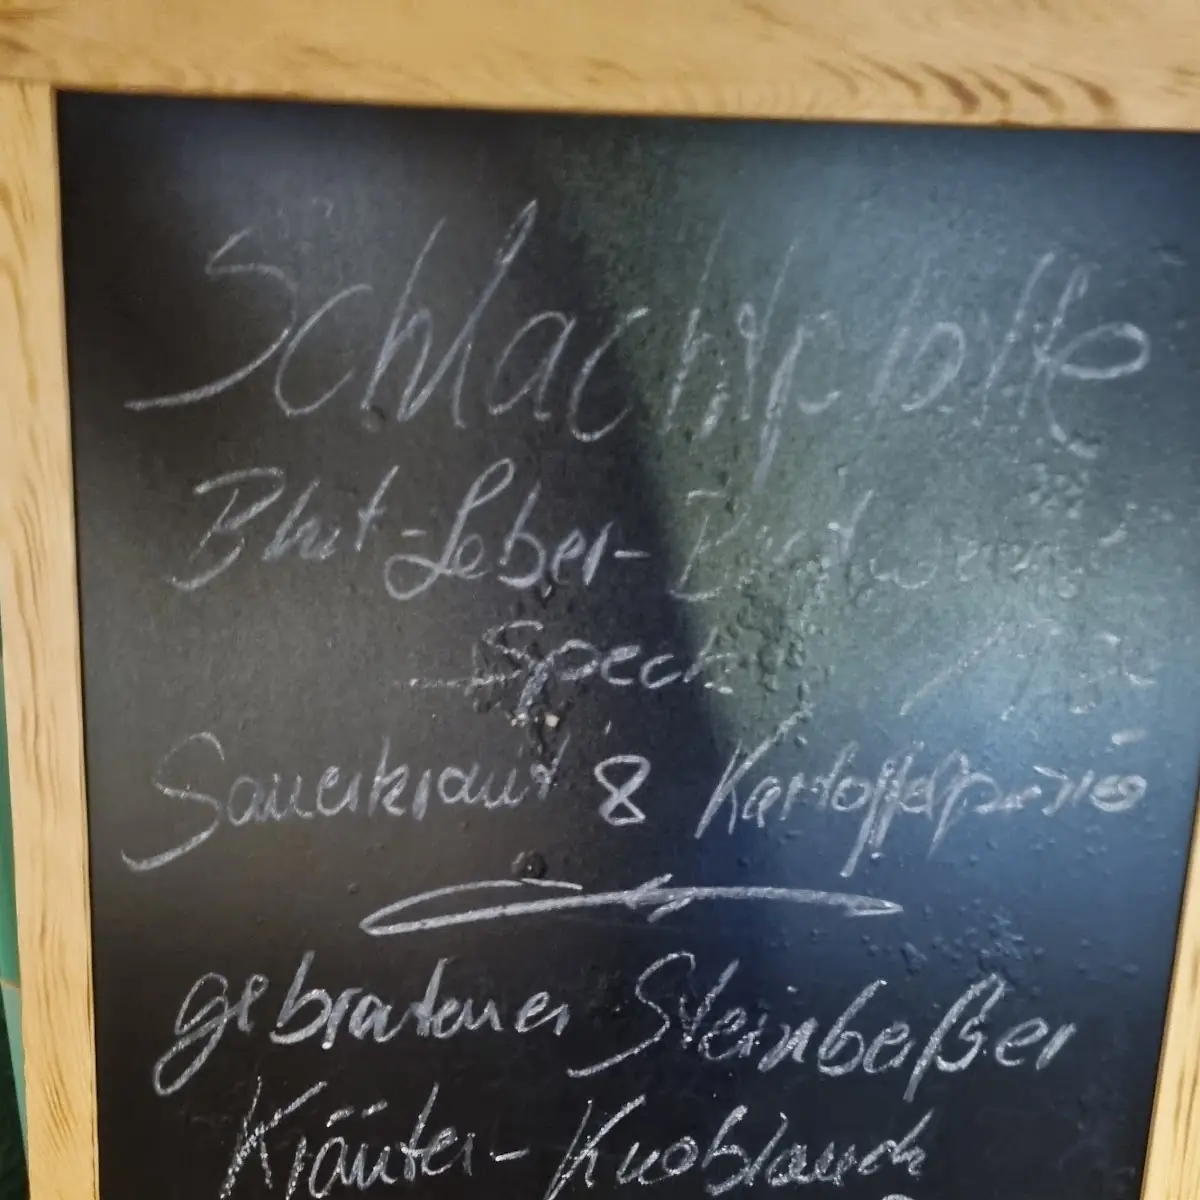 Schlachtplatte
Blut-Leber-
Speck
Sauerkraut & Kartoffelpüree
gebratener Steinbeißer
Kräuter-Knoblauch